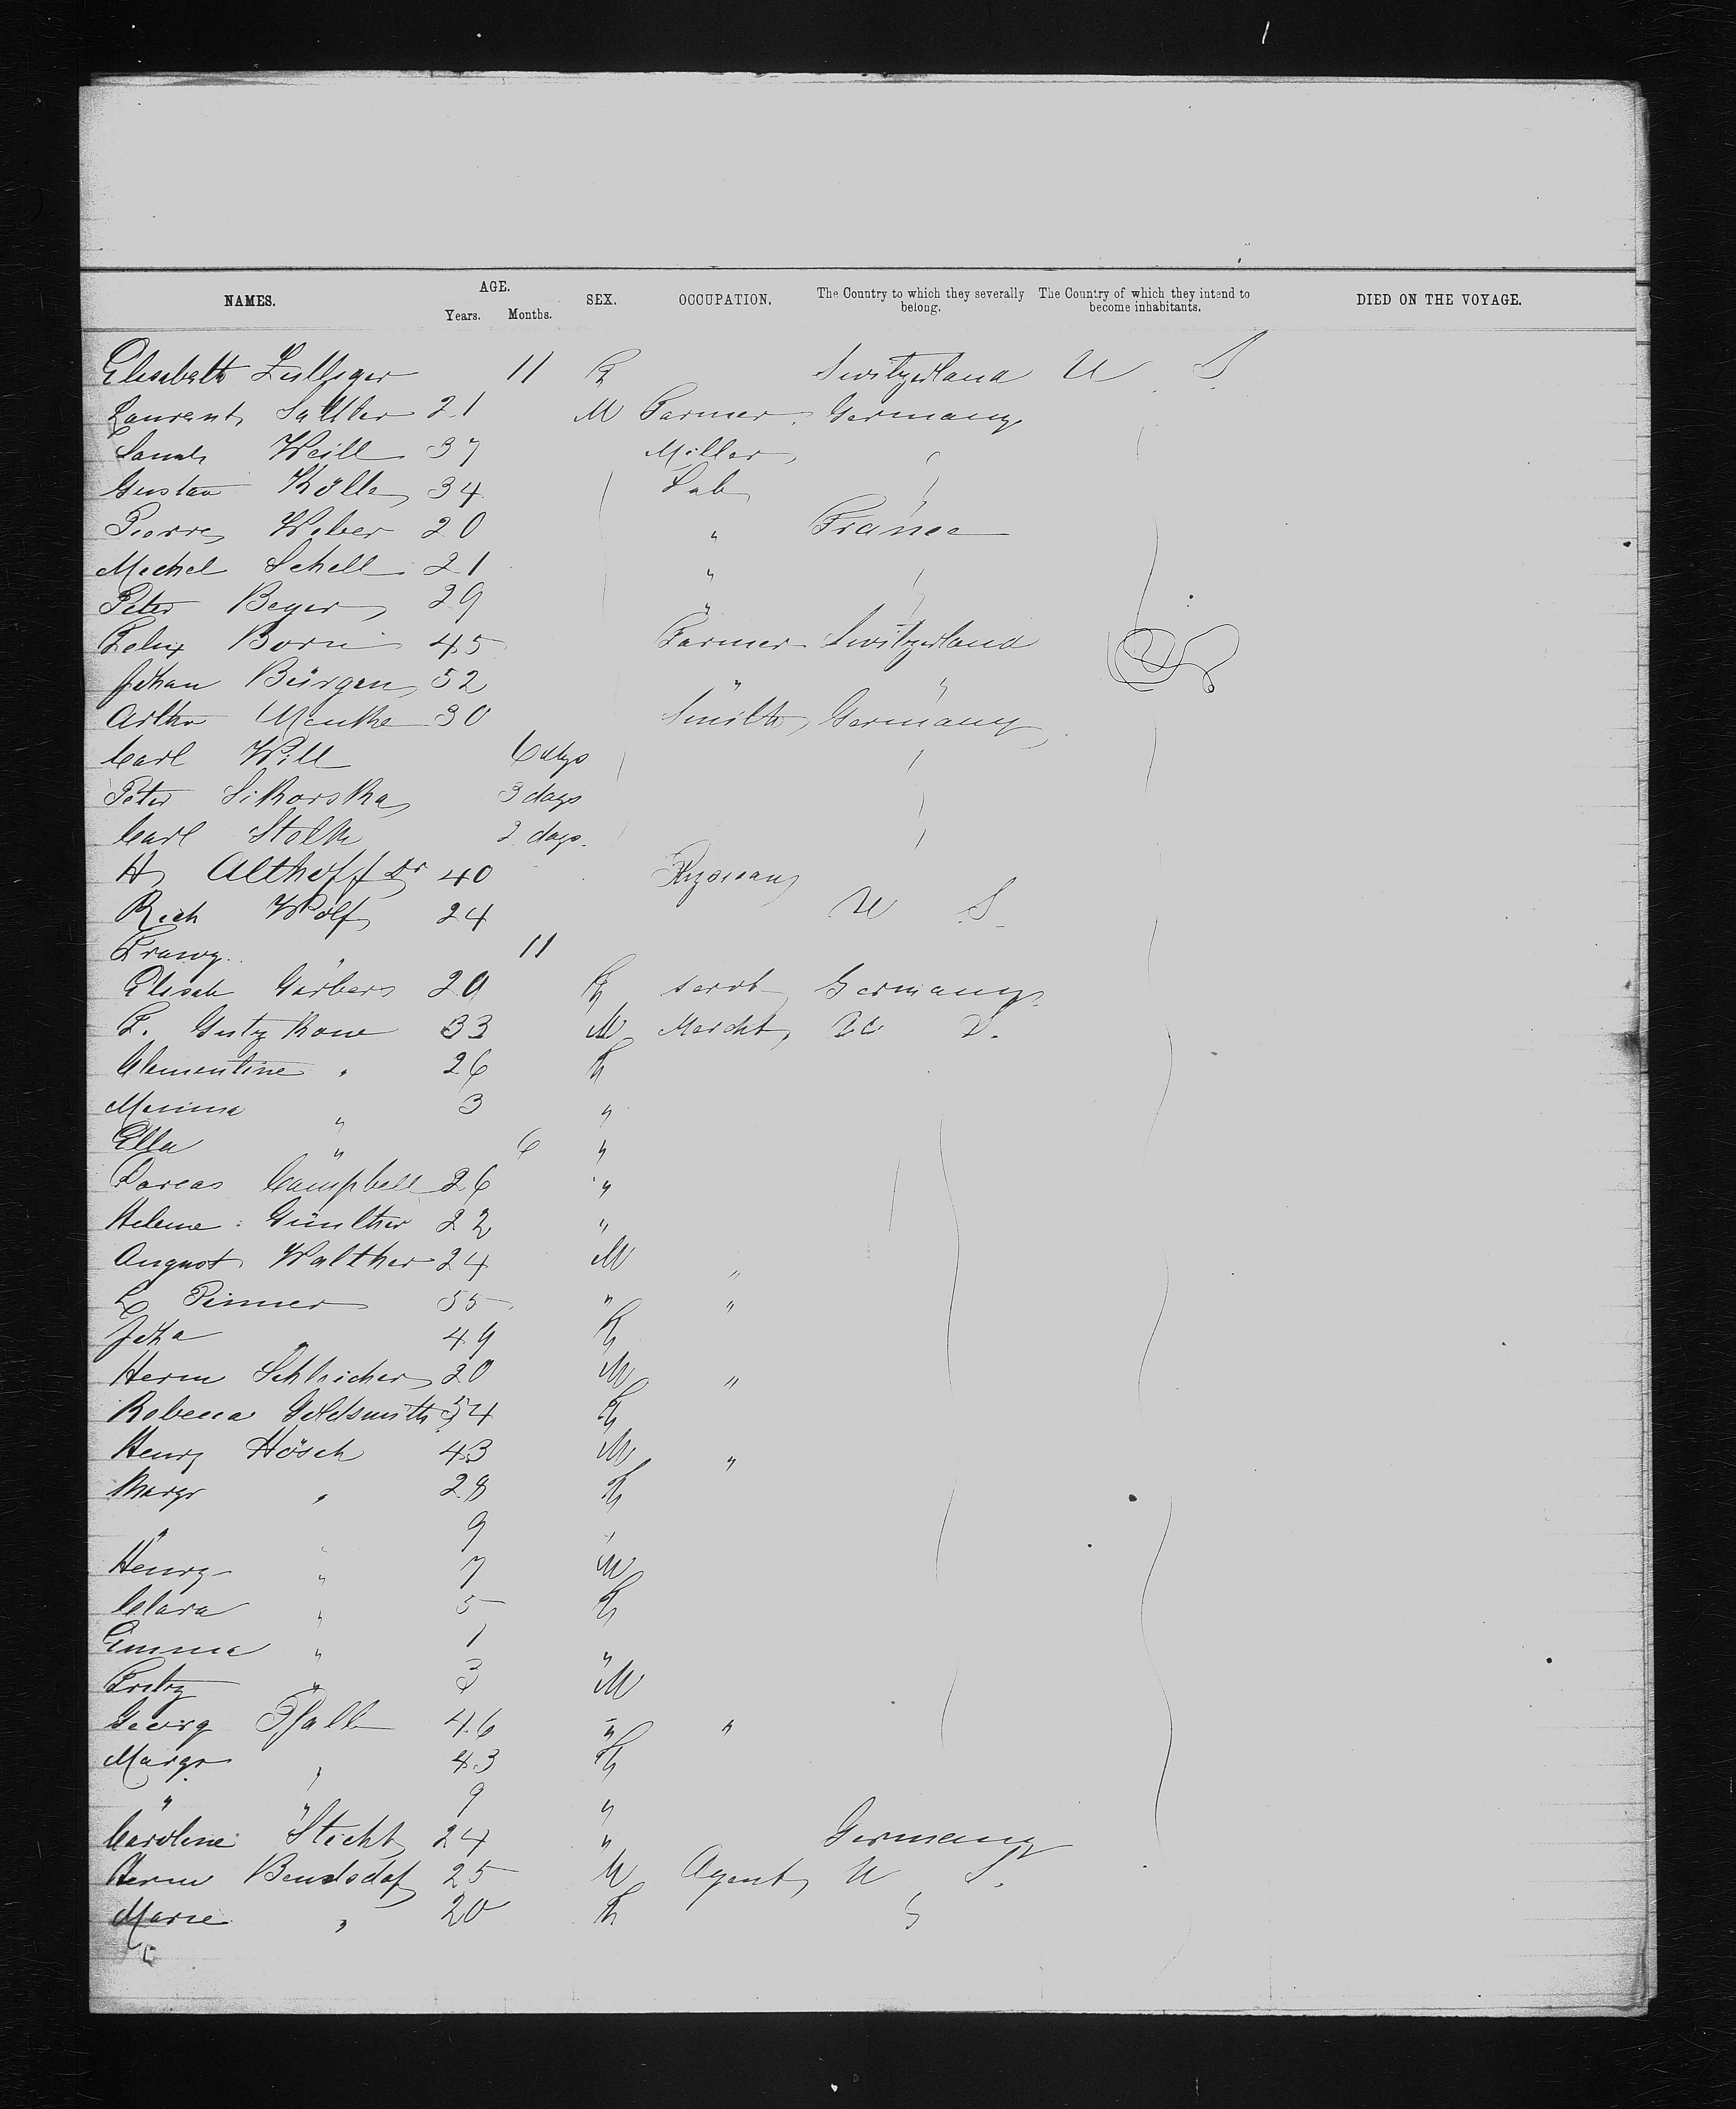 NAMES. AGE. Years. Months. SEX. OCCUPATION. The Country to which they severally belong. The Country of which they intend to become inhabitants. DIED ON THE VOYAGE.
Elisabeth 11 F Switzerland U S
Laurent Sattler 21 M Farmer Germany
Weill 37 Miller
Gustav Kölle 34 Lab
Pierre Weber 20 " France
Michel Schell 21 "
Peter Beyer 29 "
Felix Born 45 Farmer Switzerland
Johan Bürgen 52 " "
Menke 30 Smith Germany
Carl Will 6 days
Peter Sikorska 3 days
Carl Stolk 2 days.
H Althoff Dr 40
Rich Wolf 24 U S
" 11
Elisab Garbers 29 F servt Germany
33 M Mercht U S.
Clementine " 26 F
" 3 "
Ella " 6 "
Dorcas Campbell 26 "
Helene Günther 22 "
August Walther 24 M "
Pinner 55 " "
" 49 F
Herm Schleicher 20 M "
Rebecca Goldsmith 54 F
Henry Hösch 43 M "
Margr " 28 F
" " 9 "
Henry " 7 M
Clara " 5 F
Emma " 1 "
Fritz " 3 M
Georg Pfall 46 " "
Margr " 43 F
" " 9 "
Caroline Sticht 24 " Germany
Herm Bendsdof 25 M Agent U S.
Marie " 20 F "